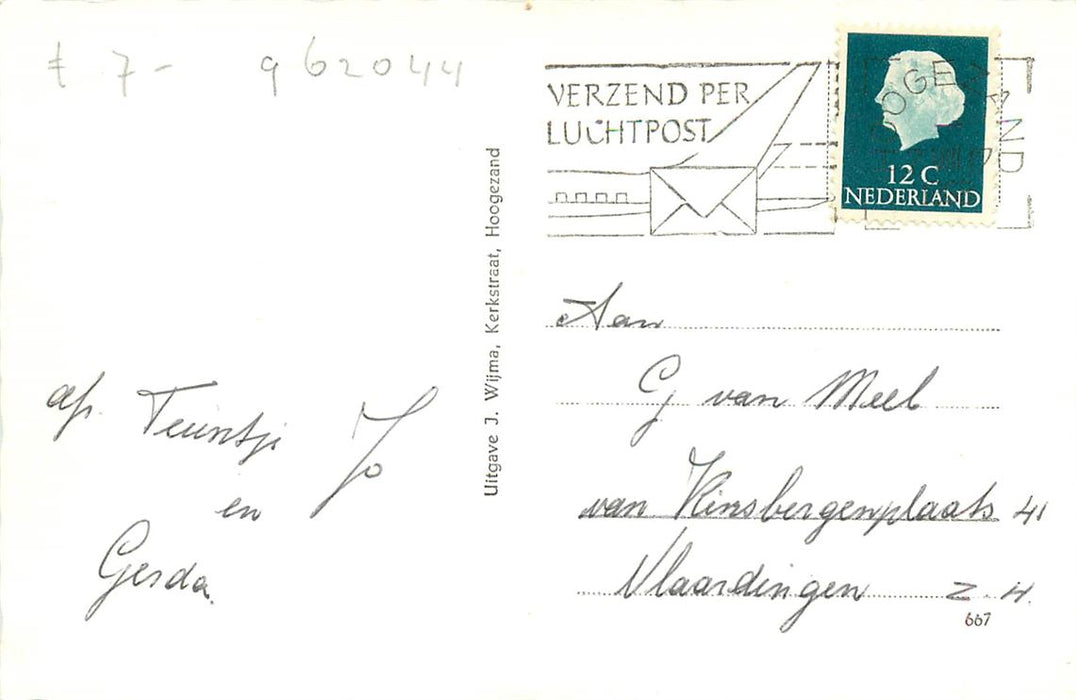 € 7- 962044
VERZEND PER
LUCHTPOST
HOOGEZAND
12 C
NEDERLAND
Uitgave J. Wijma, Kerkstraat, Hoogezand
afs. Teuntje Jo
en
Gerda.
Aan
G van Meel
van Kinsbergenplaats 41
Vlaardingen Z.H.
667